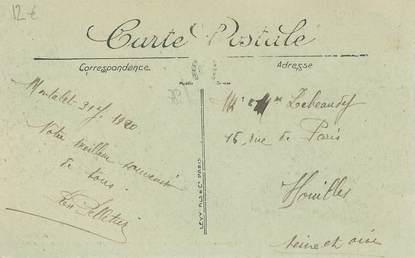 12 €
Carte Postale
Correspondance
Adresse
1920
Notre meilleur souvenir
de tous.
Pelletier
LEVY FILS & Cie PARIS
Mr et Mme
16, rue de Paris
Houilles
Seine et Oise